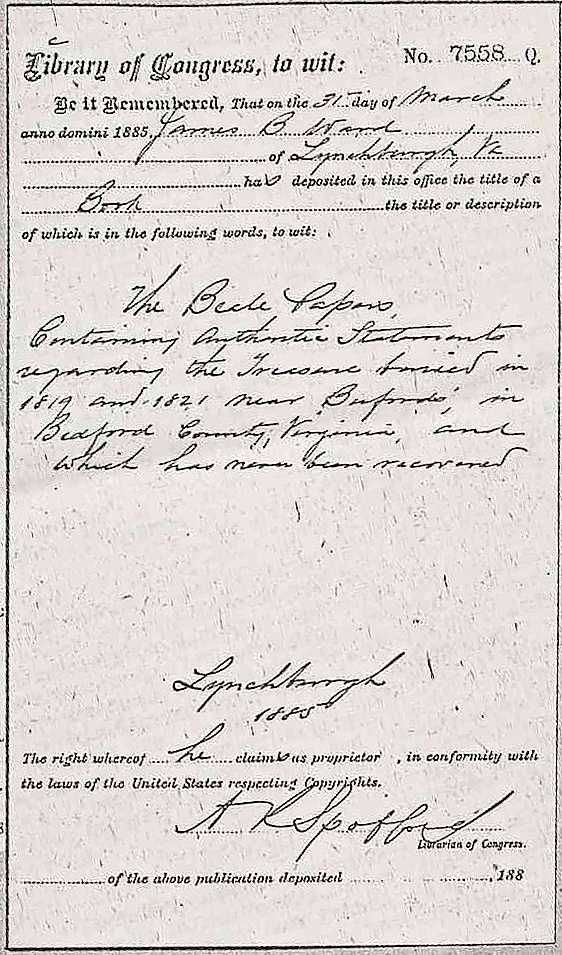 Library of Congress, to wit: No. 7558 Q.
Be it Remembered, That on the 31st day of March
anno domini 1885, James B Ward
of Lynchburgh, Va
has deposited in this office the title of a
Book the title or description
of which is in the following words, to wit:
The Beale Papers,
Containing Authentic Statements
regarding the Treasure buried in
1819 and 1821 near Bufords', in
Bedford County, Virginia, and
which has never been recovered
Lynchburgh
1885
The right whereof he claims as proprietor , in conformity with
the laws of the United States respecting Copyrights.
A R Spofford
Librarian of Congress.
of the above publication deposited , 188